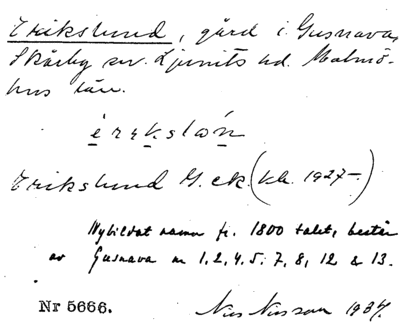 Erikslund, gård i Gusnava,
Skårby sn. Ljunits hd. Malmö-
hus län.
Erikslund G. ek. (kb. 1927-)
Nybildat namn fr. 1800 talet, består
av Gusnava nr 1, 2, 4, 5, 7, 8, 12 & 13.
Nr 5666. Nils Nilsson 1934.